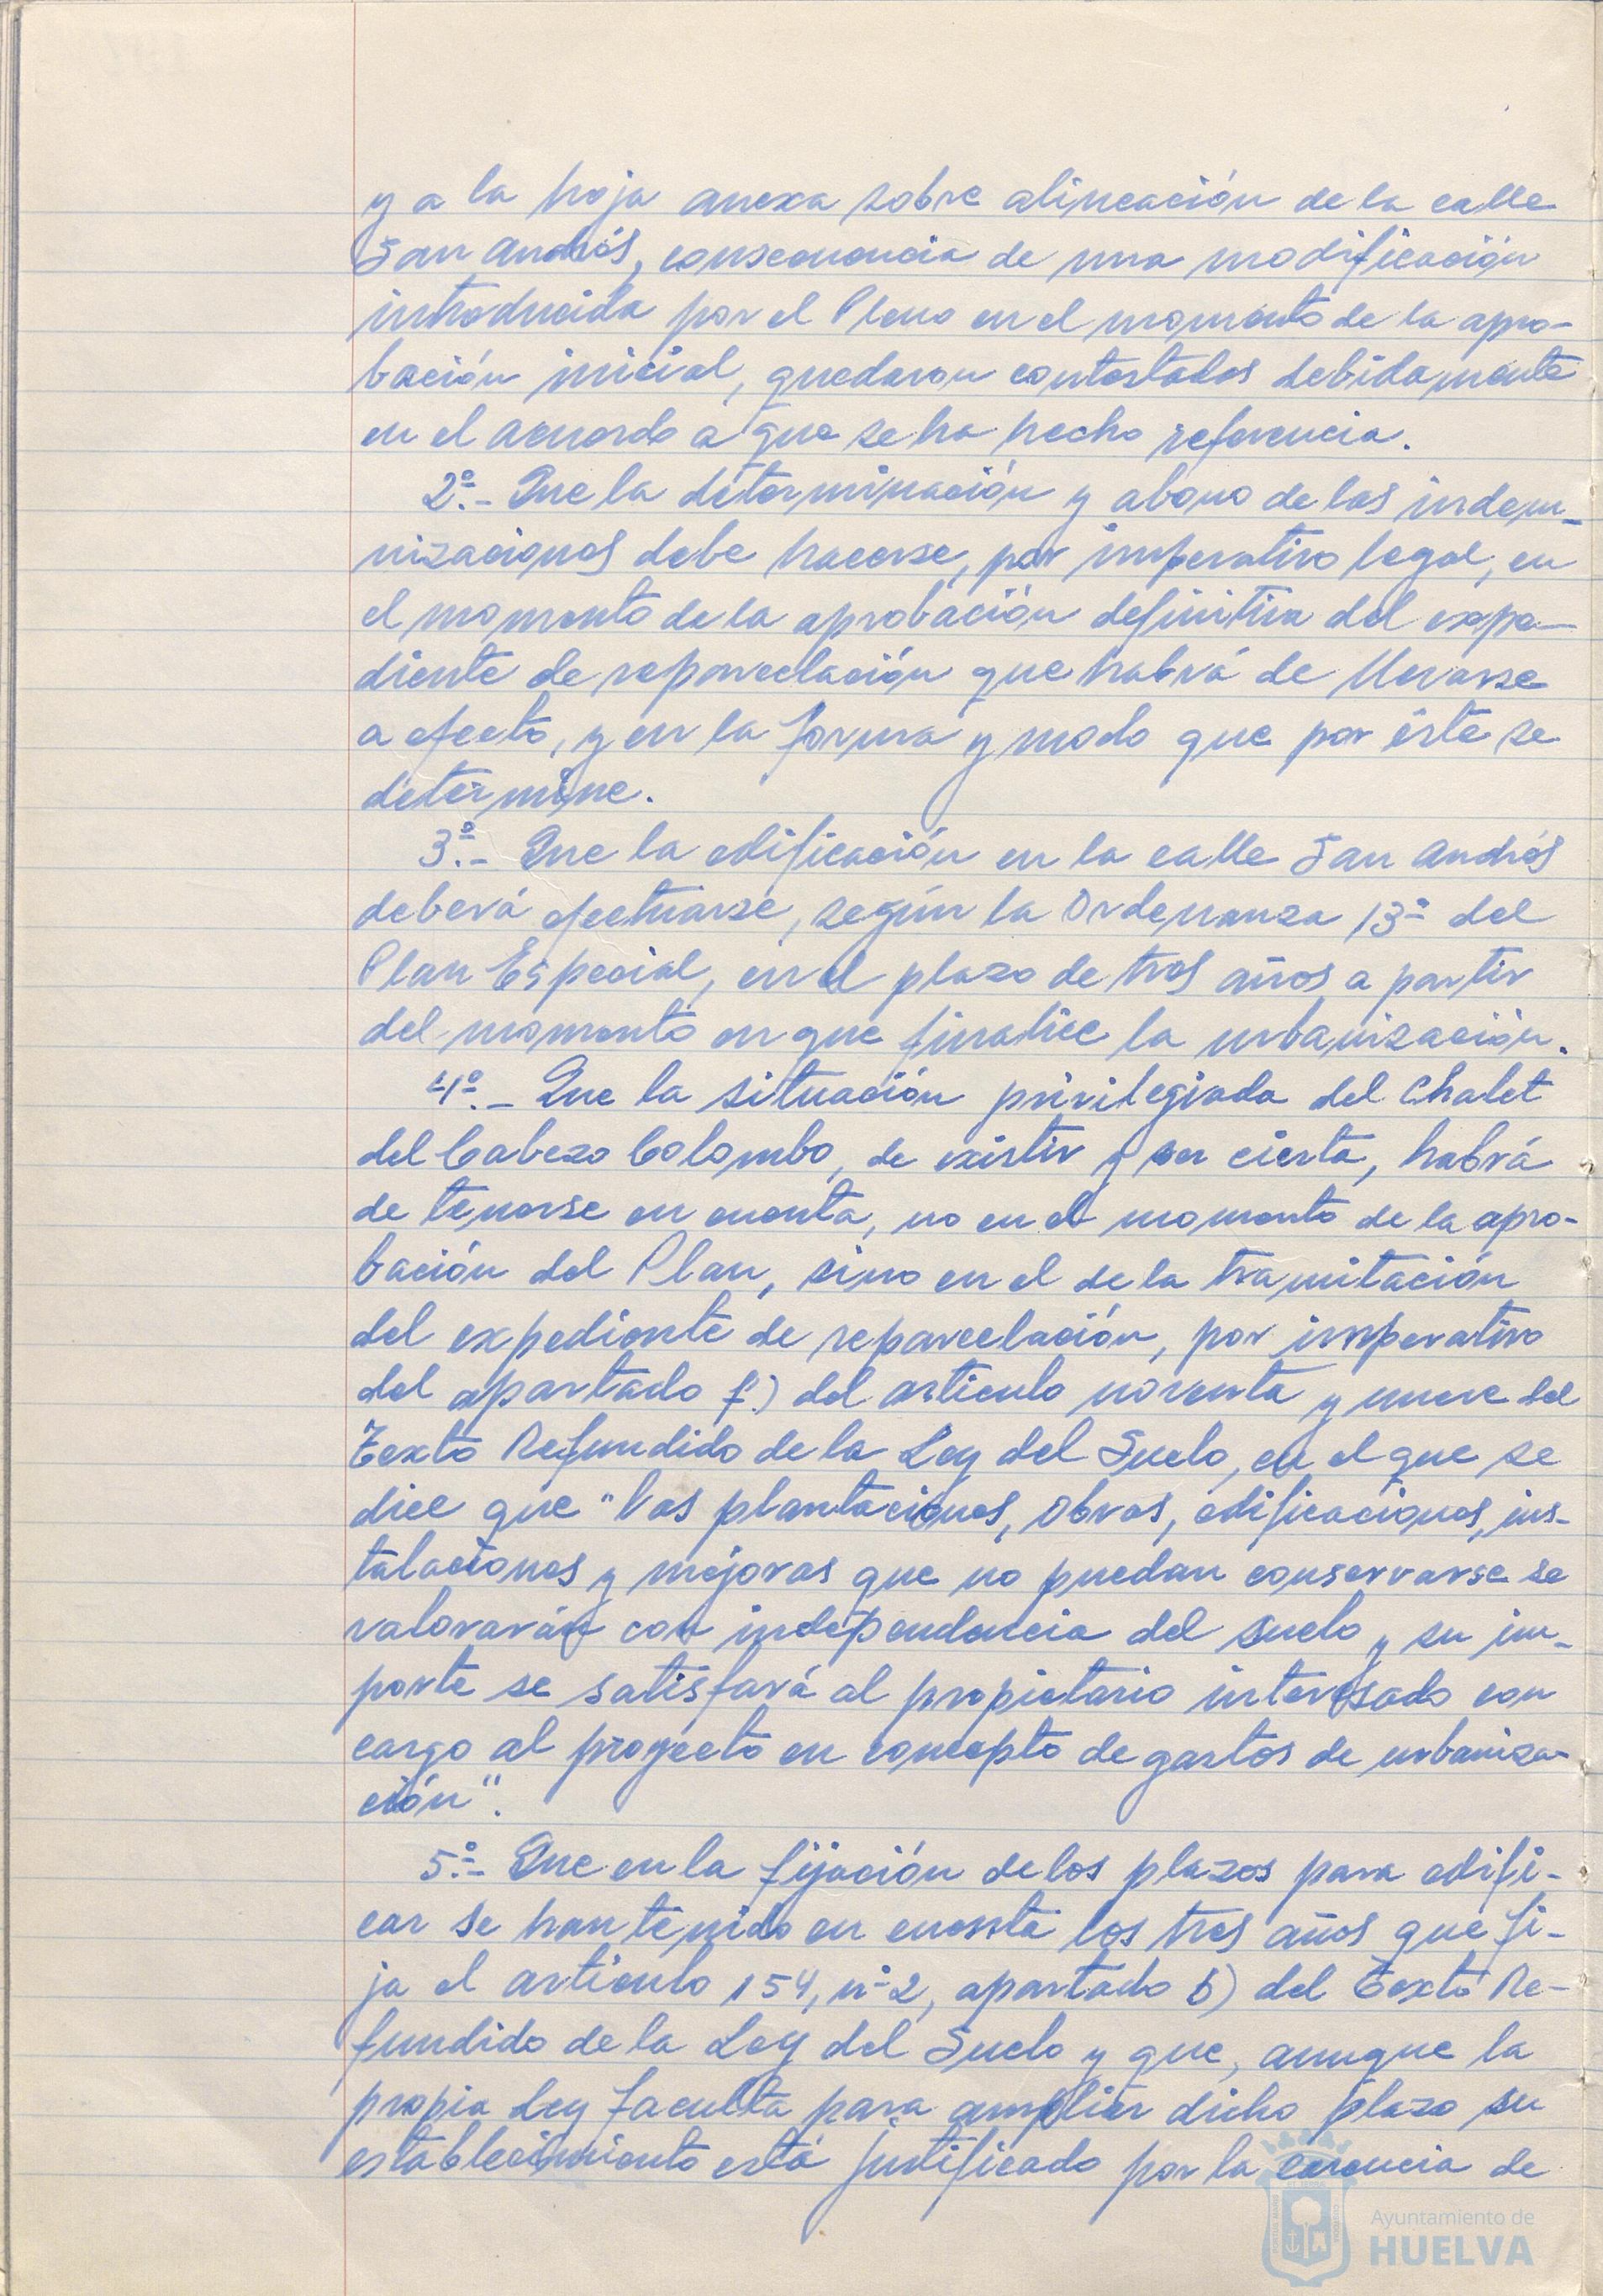 y a la hoja anexa sobre alineación de la calle
San Andrés, consecuencia de una modificación
introducida por el Pleno en el momento de la apro-
bación inicial, quedaron contestados debidamente
en el acuerdo a que se ha hecho referencia.
2º.- Que la determinación y abono de las indem-
nizaciones debe hacerse, por imperativo legal, en
el momento de la aprobación definitiva del expe-
diente de reparcelación que habrá de llevarse
a efecto, y en la forma y modo que por éste se
determine.
3º.- Que la edificación en la calle San Andrés
deberá efectuarse, según la Ordenanza 13ª del
Plan Especial, en el plazo de tres años a partir
del momento en que finalice la urbanización.
4º.- Que la situación privilegiada del Chalet
del Cabezo Colombo, de existir y ser cierta, habrá
de tenerse en cuenta, no en el momento de la apro-
bación del Plan, sino en el de la tramitación
del expediente de reparcelación, por imperativo
del apartado f) del artículo noventa y nueve del
Texto Refundido de la Ley del Suelo, en el que se
dice que "las plantaciones, obras, edificaciones, ins-
talaciones y mejoras que no puedan conservarse se
valorarán con independencia del suelo y su im-
porte se satisfará al propietario interesado con
cargo al proyecto en concepto de gastos de urbaniza-
ción".
5º.- Que en la fijación de los plazos para edifi-
car se han tenido en cuenta los tres años que fi-
ja el artículo 154, nº 2, apartado b) del Texto Re-
fundido de la Ley del Suelo y que, aunque la
propia Ley faculta para ampliar dicho plazo su
establecimiento está justificado por la carencia de
Ayuntamiento de
HUELVA